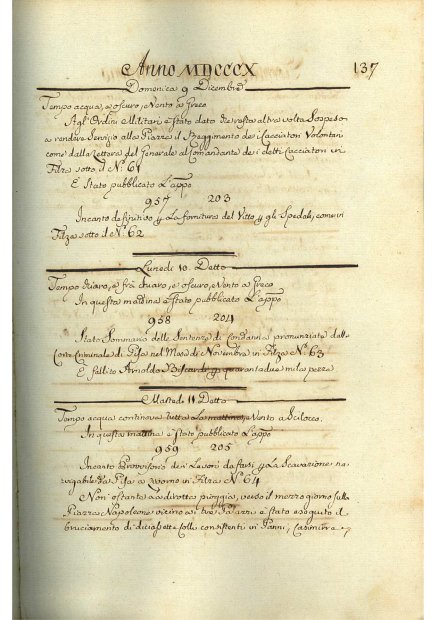 Anno MDCCCX 137
Domenica 9 Dicembre
Tempo acqua, e oscuro, e Vento a Greco
Agl'Ordini Militari è stato dato di resta altra volta Sospeso
a rendere Servizio alla Piazza il Reggimento dei Cacciatori Volontari
come dalla Lettera del Generale al Comandante dei detti Cacciatori in
Filza sotto il N.º 61
E Stato pubblicato L'appo
957 203
Incanto definitivo La fornitura del Vitto gli Spedali, come in
Filza sotto il N.º 62
Lunedi 10. Detto
Tempo chiaro, e frà chiaro, e oscuro, e Vento a Greco
In questa mattina è stato pubblicato L'appo
958 204
Stato Sommario delle Sentenze di Condanna pronunziate dalla
Corte Criminale di Pisa nel Mese di Novembre in Filza N.º 63
E fallito Arnoldo quarantadue mila pezze
Martedi 11 Detto
Tempo acqua continova tutta La mattina, e Vento a Scilocco.
In questa mattina è stato pubblicato L'appo
959 205
Incanto Provvisorio dei Lavori da farsi La Scavazione na=
vigabile da Pisa a Livorno in Filza N.º 64
Non ostante la dirotta pioggia, verso il mezzogiorno sulla
Piazza Napoleone vicino ai tre Palazzi è stato eseguito il
bruciamento di diciasette colli consistenti in Panni, Casimirre